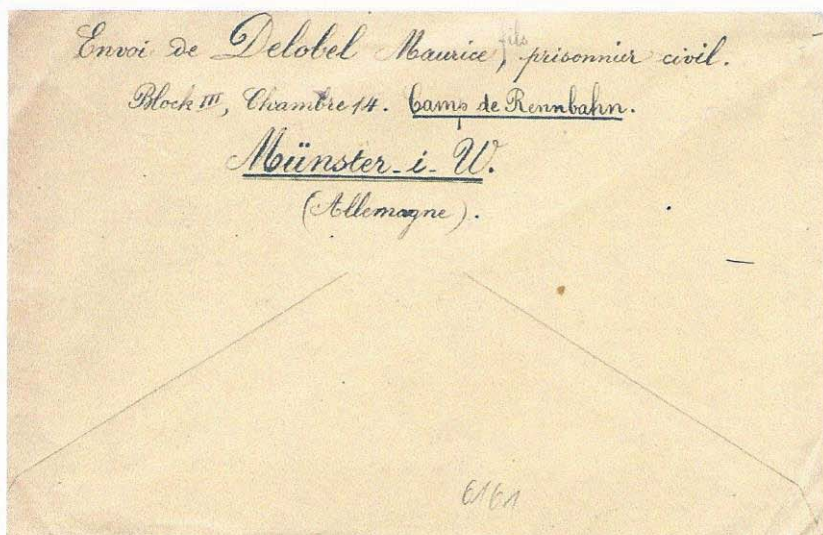 Envoi de Delobel Maurice, fils prisonnier civil.
Block III, Chambre 14. Camp de Rennbahn.
Münster-i-W.
(Allemagne).
6161